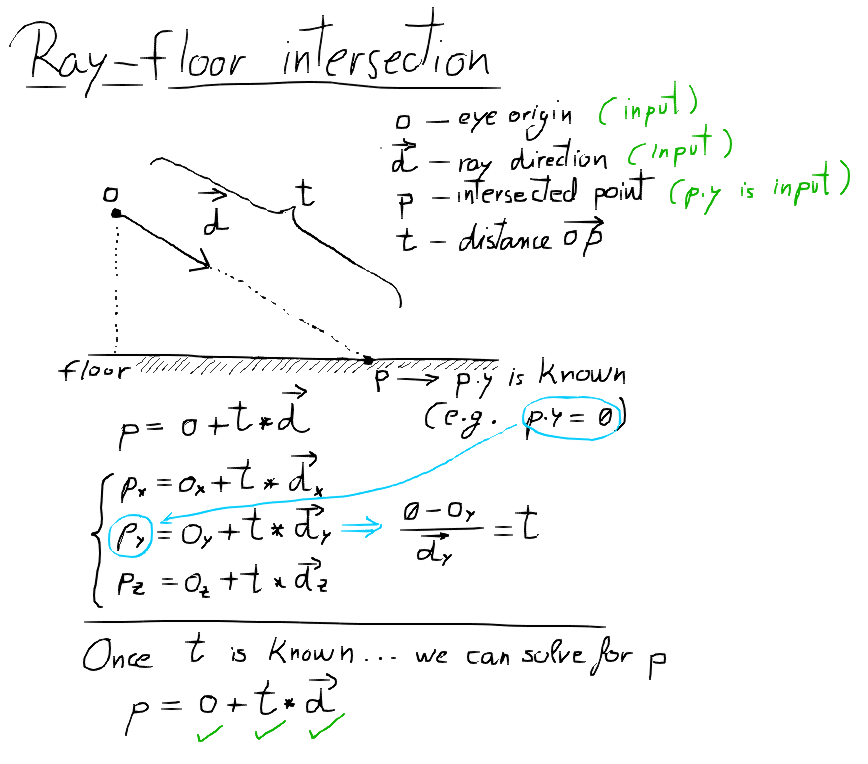 Ray-floor intersection
o - eye origin (input)
d - ray direction (input)
p - intersected point (p.y is input)
t - distance op
o
d
t
floor
p → p.y is known
(e.g. p.y = 0)
p = o + t * d
px = ox + t * dx
py = oy + t * dy ⇒ (0 - oy) / dy = t
pz = oz + t * dz
Once t is known... we can solve for p
p = o + t * d